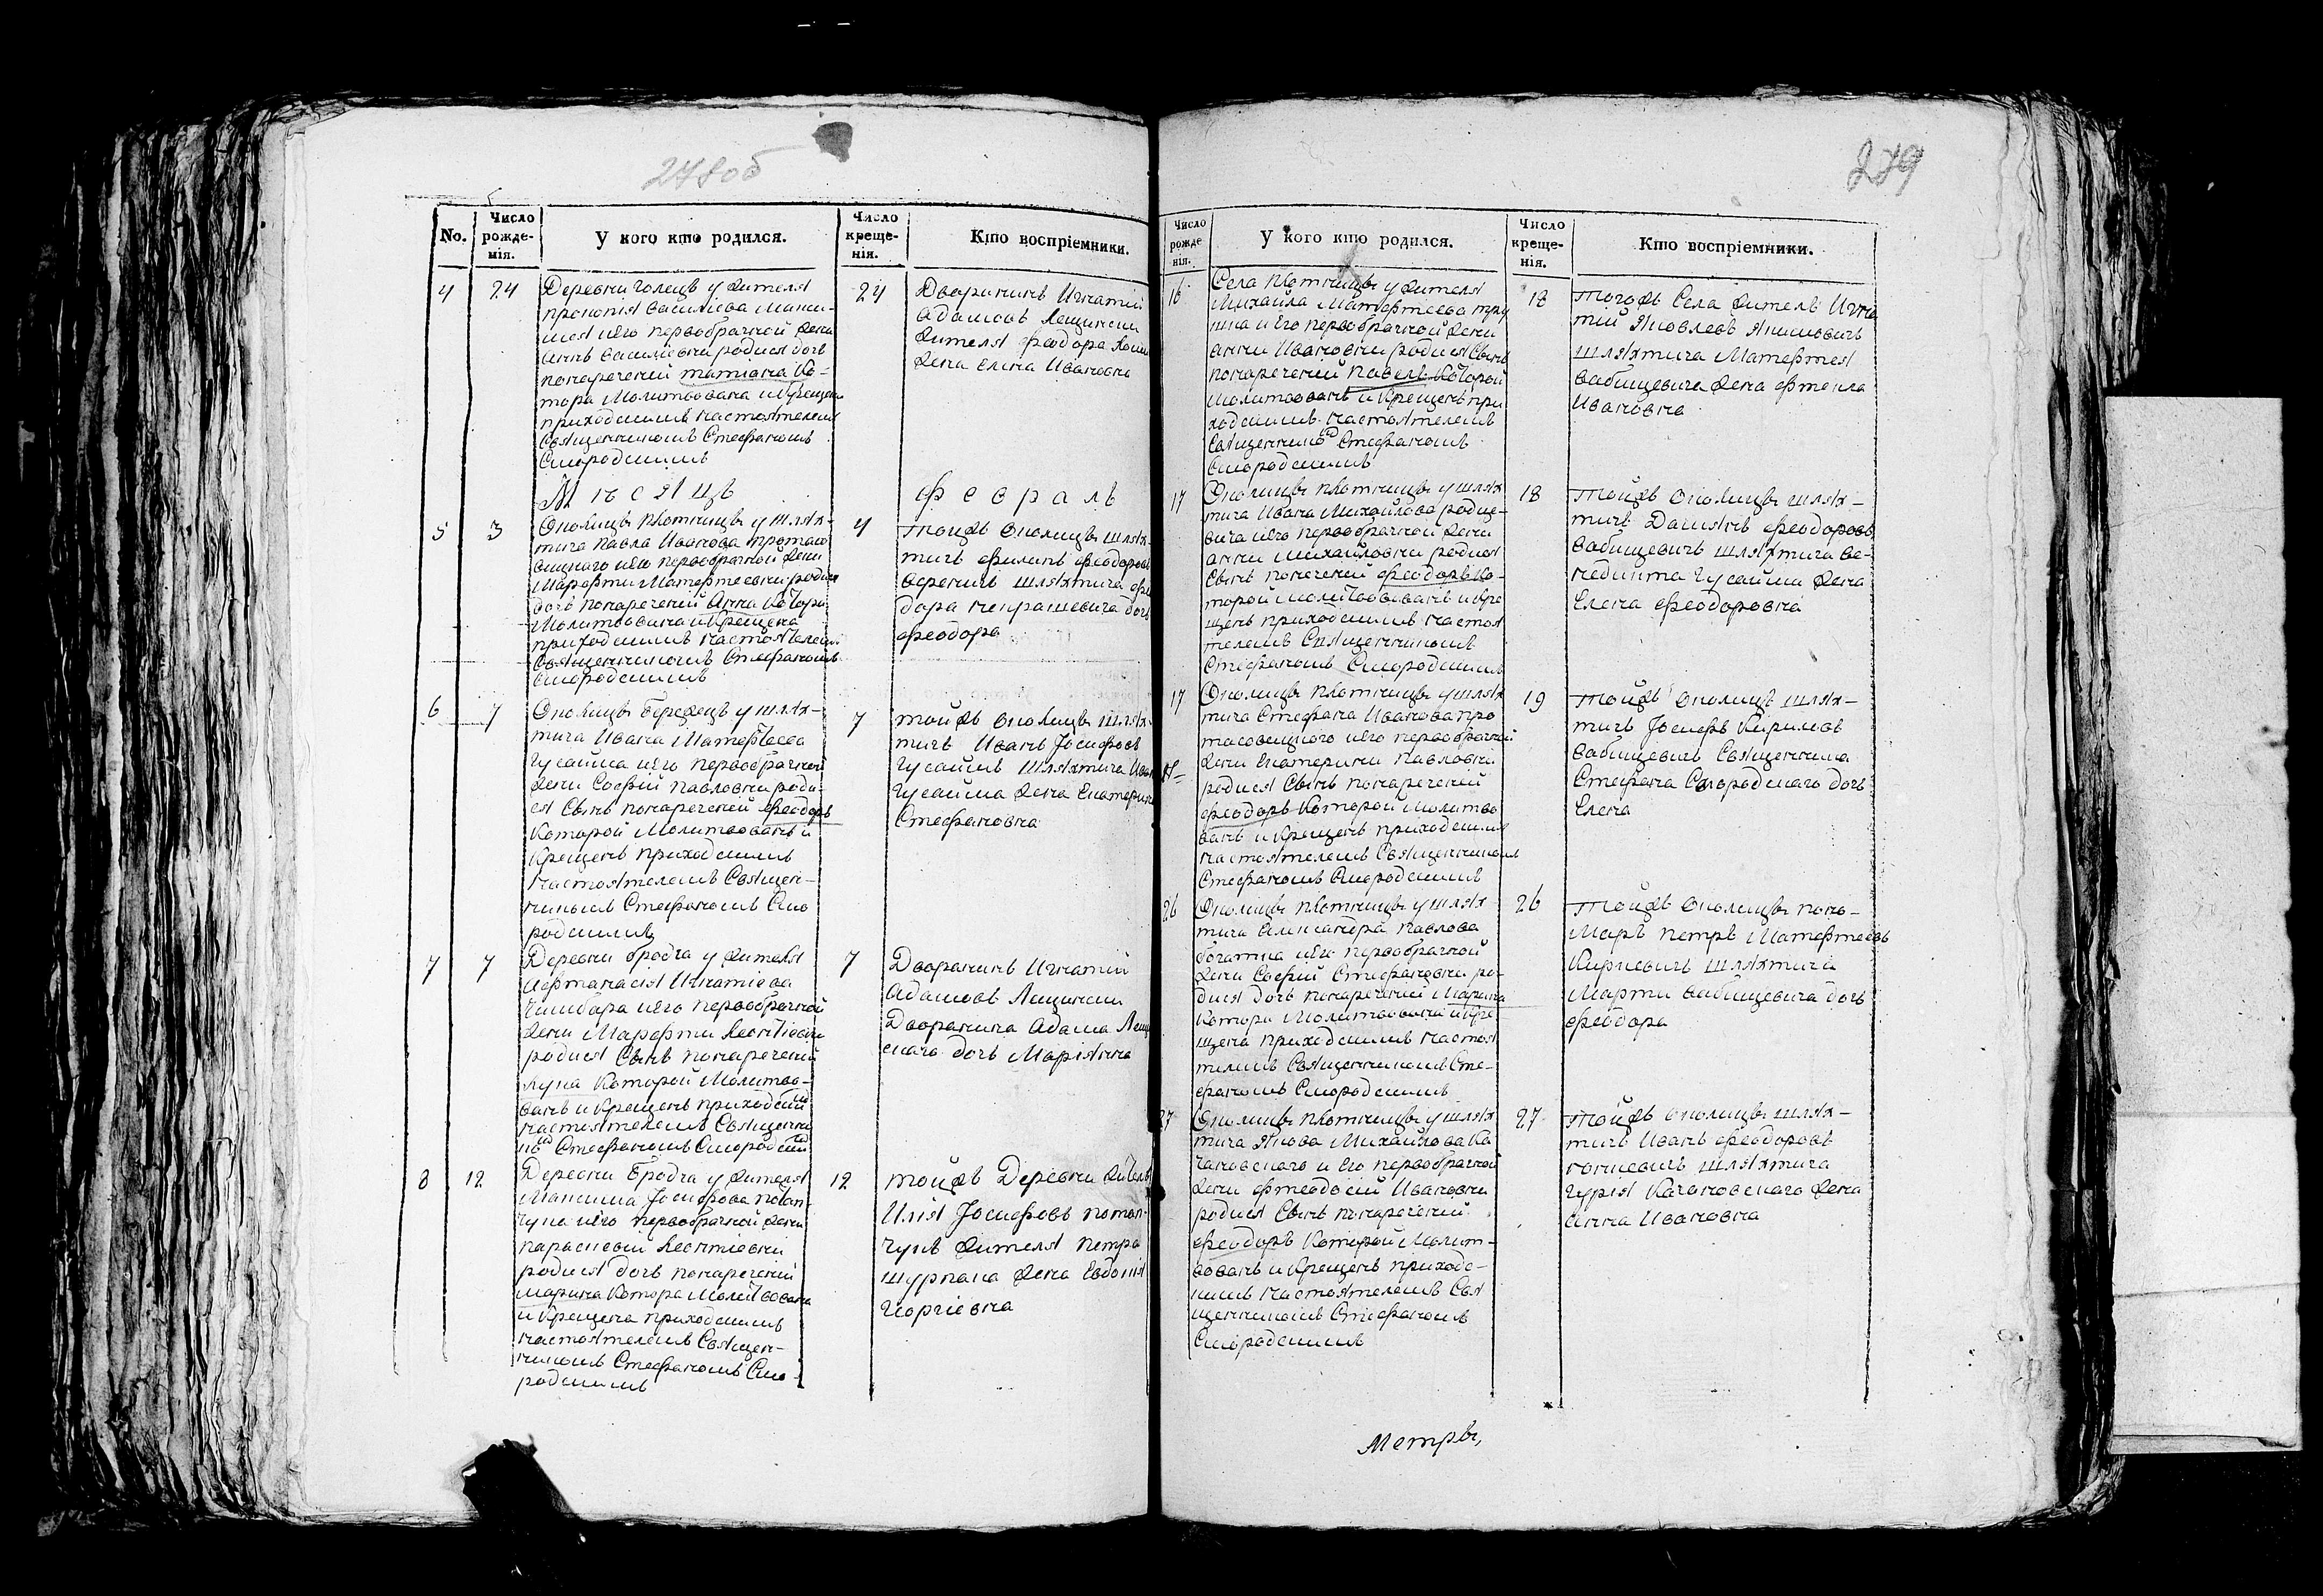 278об
No.
Число рожде-нія.
У кого кто родился.
Число креще-нія.
Кто воспріемники.
4
24
Деревни Голецъ у жителя
прокопія василіева
и его первобрачной жени
анни василіевни родися дочь
понареченна татіана ко-
тора молитвована и крещена
приходскимъ настоятелемъ
Священникомъ Стефаномъ
Смородскимъ
24
Дворянинъ Игнатій
адамовъ Лещински
жителя феодора
жена елена Ивановна
Мѣсяцъ
Февраль
5
3
Околицы плотницы у шлях-
тича павла Иванова протасо
вицкаго и его первобрачной жени
Марфти Матфтеевни родися
дочь понареченій Анна котора
Молитвована и крещена
приходскимъ настоятелемъ
Священникомъ Стефаномъ
Смородскимъ
4
тойжъ околицы шлях-
тичъ филипъ феодоровъ
шляхтича фео
дора дочь
феодора
6
7
Околицы Бережецъ у шлях-
тича Ивана Матфтеева
Гусаима и его первобрачной
жени Софіи павловни роди-
ся Сынъ понареченій феодоръ
которой Молитвованъ и
крещенъ приходскимъ
настоятелемъ Священ-
никомъ Стефаномъ Смо
родскимъ
7
тойжъ околицы шлях-
тичъ Иванъ Іосифовъ
Гусаимъ шляхтича Иван
Гусаима жена Екатерина
Стефановна
7
7
Деревни бродча у жителя
афтанасія Игнатіева
Чимбара и его первобрачной
жени Марфти Леонтіевни
родися Сынъ понареченій
Лука которой Молитво-
ванъ и крещенъ приходским
настоятелемъ Священни
комъ Стефаномъ Смородским
7
Дворянинъ Игнатій
Адамовъ Лещински
Дворянина Адама Лещи
скаго дочь Маріянна
8
12
Деревни Бродча у жителя
Максима Іосифова потап
чука и его первобрачной жени
параскевіи Леонтіевни
родися дочь понареченій
марина котора Молитвована
и крещена приходскимъ
настоятелемъ Священ-
никомъ Стефаномъ Смо-
родскимъ
12
тойжъ Деревни житель
Илія Іосифовъ потап-
чукъ жителя петра
шурпача жена Евдокія
Георгіевна
279
Число рожде нія.
У кого кто родился.
Число креще-нія.
Кто воспріемники.
16
Села плотницы у жителя
Михаила Матфтеева
и его первобрачной жени
анни Ивановни родися Сынъ
понареченій павелъ которой
Молитвованъ и крещенъ при
ходскимъ настоятелемъ
Священником Стефаномъ
Смородскимъ
18
тогожъ Села житель Игна
тій Яковлевъ Якимовичъ
шляхтича Матфтея
бабищевича жена фтекла
Ивановна
17
Околицы плотницы у шлях
тича Ивана Михайлова родце-
вича и его первобрачной жени
анни Михайловни родися
Сынъ понареченій феодоръ ко-
торой молитвованъ и кре
щенъ приходскимъ настоя
телемъ Священникомъ
Стефаномъ Смородскимъ
18
тойжъ околицы шлях-
тичъ Даміянъ феодоровъ
бабищевичъ шляхтича бе-
недикта Гусаима жена
Елена феодоровна
17
Околицы плотницы у шлях
тича Стефана Иванова про
тасовицкого и его первобрачной
жени Екатерини павловни
родися Сынъ понареченій
феодоръ которой молитво
ванъ и крещенъ приходским
настоятелемъ Священникомъ
Стефаномъ Смородскимъ
19
тойжъ околицъ шлях-
тичъ Іосифъ Кириловъ
бабищевичъ Священника
Стефана Смородскаго дочь
Елена
26
Околицы плотницы у шлях
тича александра павлова
богатка и его первобрачной
жени Софіи Стефановни ро-
дися дочь понареченій Марина
котора Молитвована и кре
щена приходскимъ настоя
телемъ Священникомъ Сте-
фаномъ Смородскимъ
26
тойжъ околицы поно-
Маръ петръ Матфтеевъ
Киркевичъ шляхтича
Марти бабищевича дочь
феодора
27
Околицы плотницы у шлях
тича Якова Михайлова ка
чановскаго и его первобрачной
жени фтеодосіи Ивановни
родися Сынъ понареченій
феодоръ которой Молит-
вованъ и крещенъ приходс-
кимъ настоятелемъ Свя
щенникомъ Стефаномъ
Смородскимъ
27
тойжъ околицы шлях-
тичъ Иванъ феодоровъ
шляхтича
гурія Качановскаго жена
анна Ивановна
Метры,